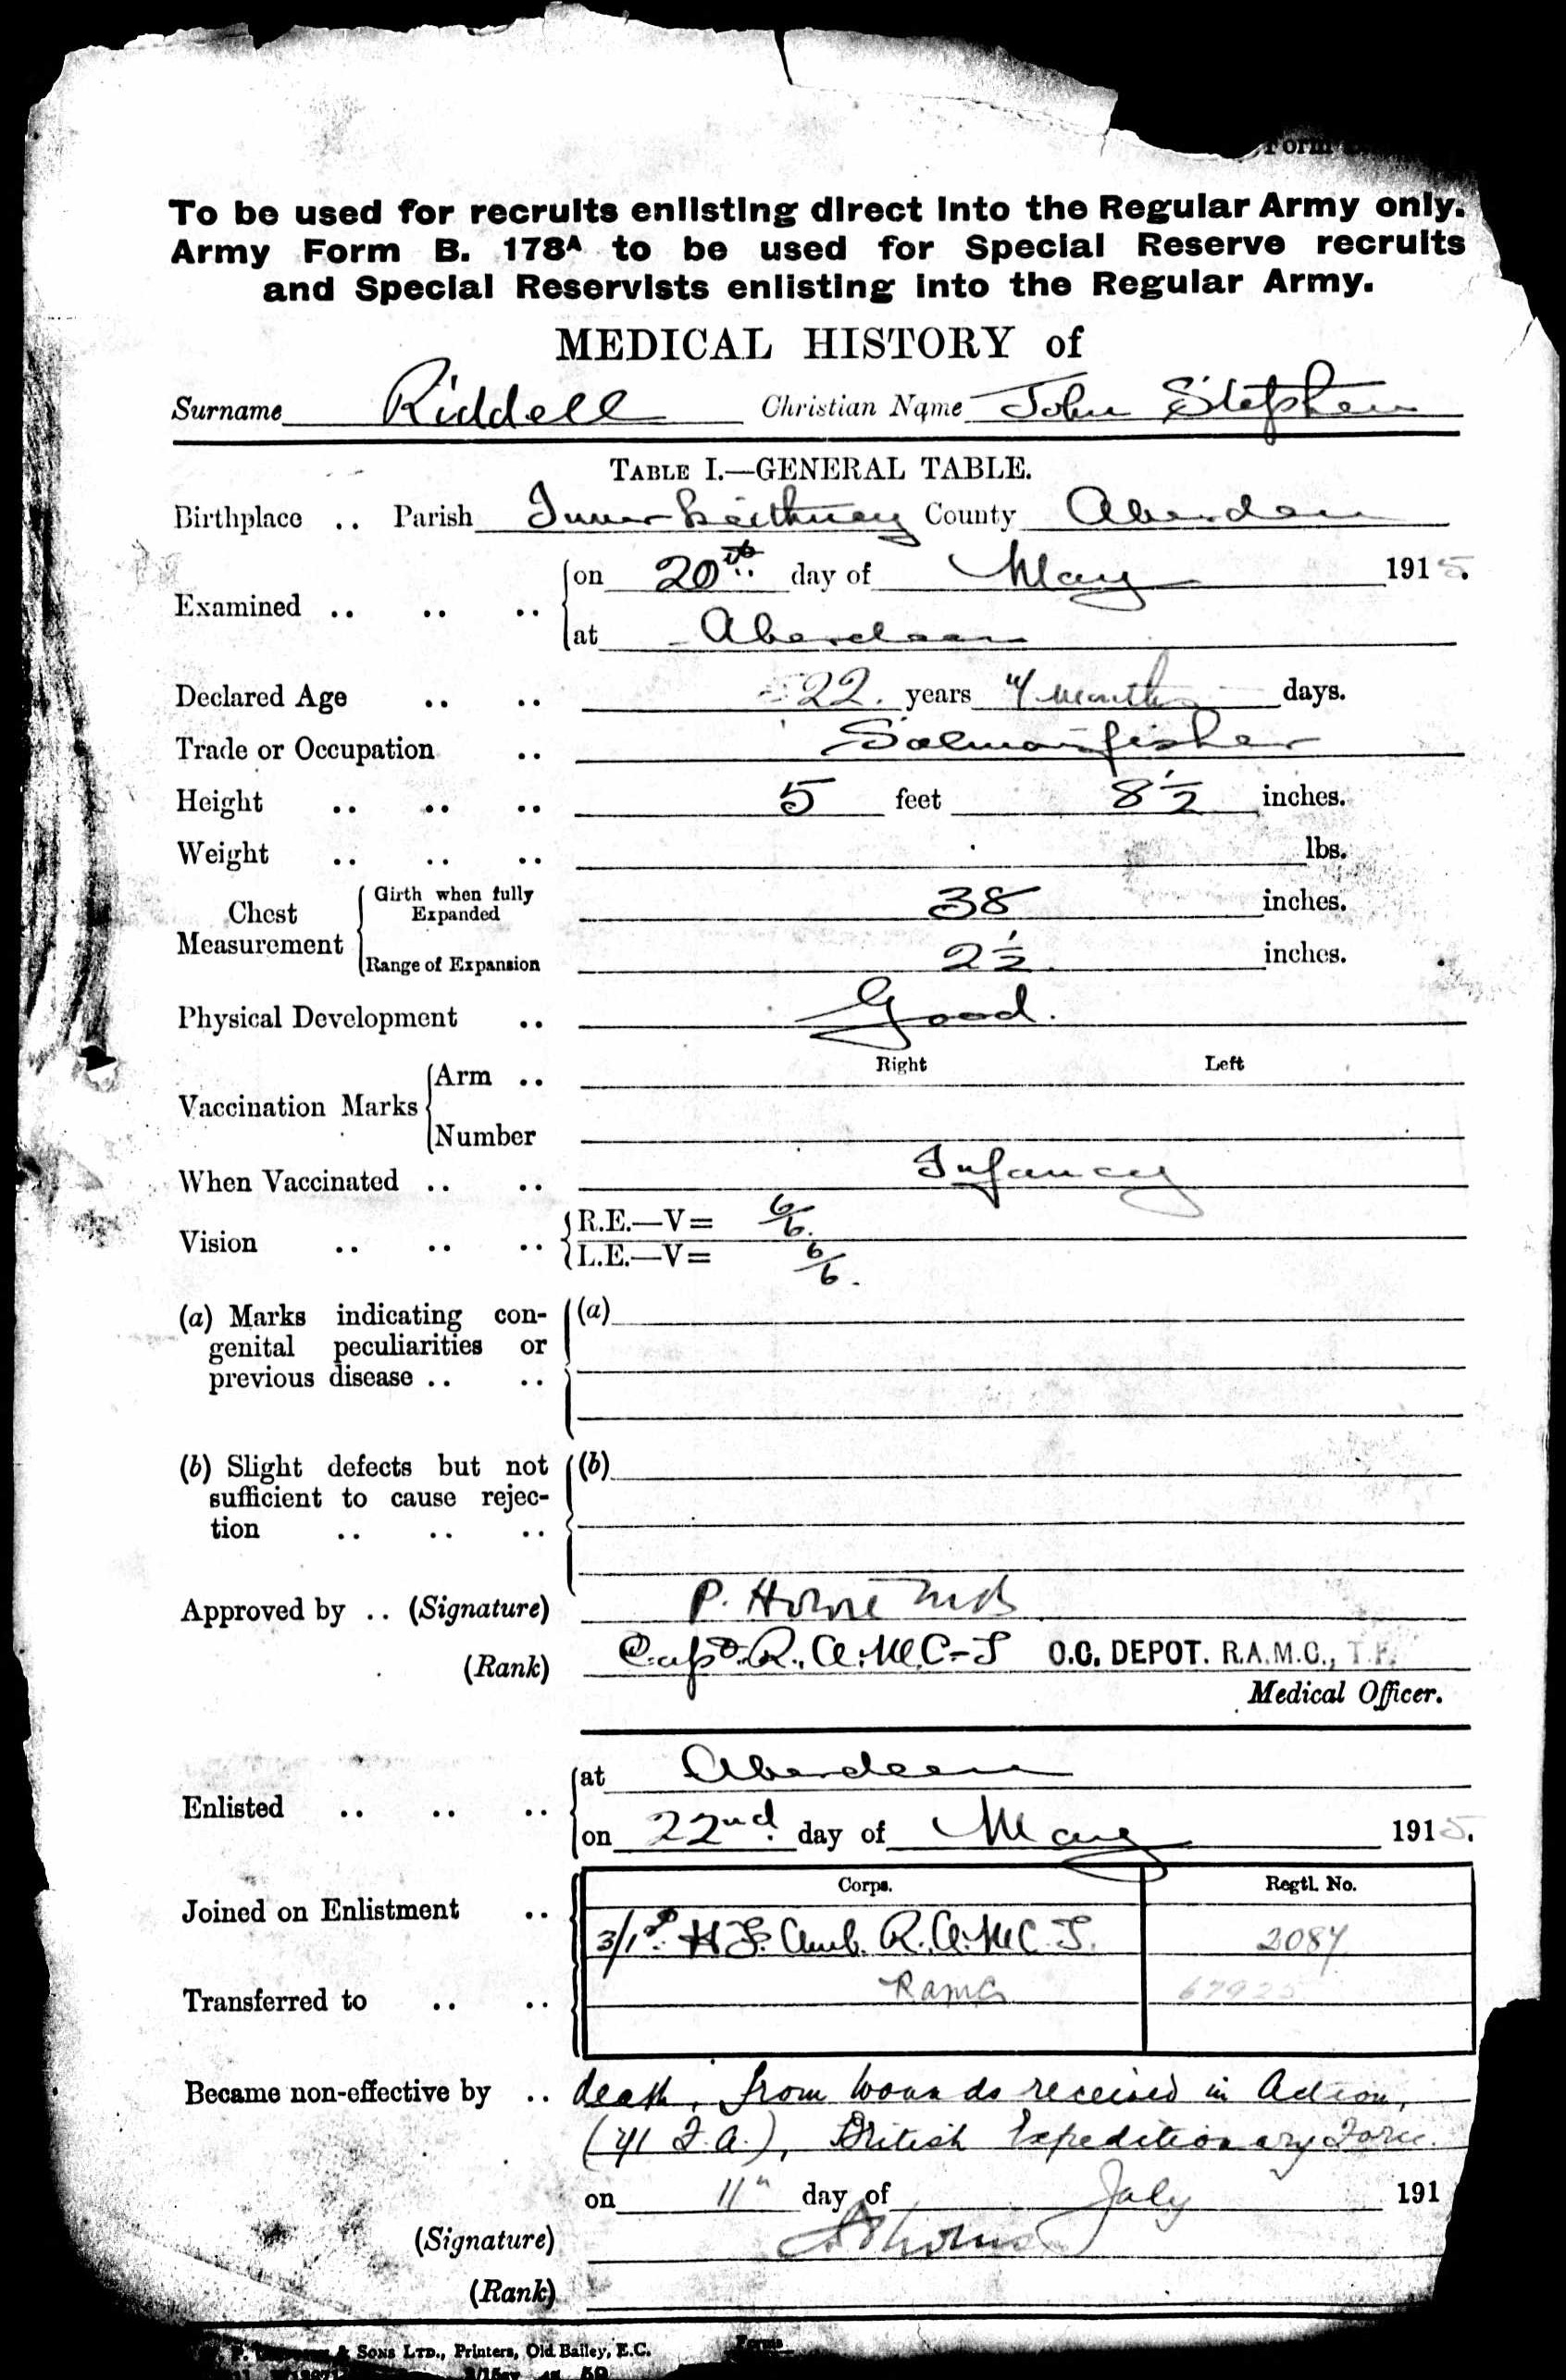 Form
To be used for recruits enlisting direct into the Regular Army only.
Army Form B. 178A to be used for Special Reserve recruits
and Special Reservists enlisting into the Regular Army.
MEDICAL HISTORY of
Surname Riddell Christian Name John Stephen
TABLE I.—GENERAL TABLE.
Birthplace .. Parish Inverkeithney County Aberdeen
Examined .. .. .. on 20th day of May 1915.
at Aberdeen
Declared Age .. .. 22 years 4 months days.
Trade or Occupation .. Salmon fisher
Height .. .. .. 5 feet 8½ inches.
Weight .. .. .. lbs.
Chest Measurement Girth when fully Expanded 38 inches.
Range of Expansion 2½ inches.
Physical Development .. Good.
Right Left
Vaccination Marks Arm ..
Number
When Vaccinated .. .. Infancy
Vision .. .. .. R.E.—V= 6/6.
L.E.—V= 6/6.
(a) Marks indicating con- (a)
genital peculiarities or
previous disease .. ..
(b) Slight defects but not (b)
sufficient to cause rejec-
tion .. .. ..
Approved by .. (Signature) P. Howie MB
(Rank) Capt. R.A.M.C-T O.C. DEPOT. R.A.M.C., T.F.
Medical Officer.
Enlisted .. .. .. at Aberdeen
on 22nd day of May 1915.
Corps. Regtl. No.
Joined on Enlistment .. 3/1st. H F. Amb. R.A.M.C. T. 2087
Transferred to .. .. RAMC
Became non-effective by .. death, from wounds received in Action,
F.A.), British Expeditionary Force.
on 11th day of July 191
(Signature)
(Rank)
& SONS LTD., Printers, Old Bailey, E.C. Forms